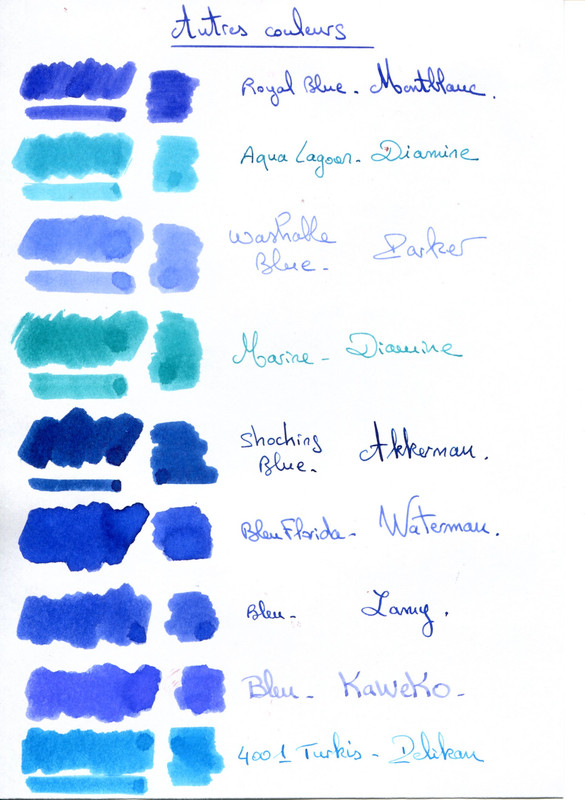 Autres couleurs
Royal Blue - Montblanc.
Aqua Lagoon - Diamine
Washable Parker
Blue -
Marine - Diamine
Shocking Akkerman.
Blue -
Bleu Florida - Waterman.
Bleu - Lamy.
Bleu - KaWeKo -
4001 Turkis - Pelikan